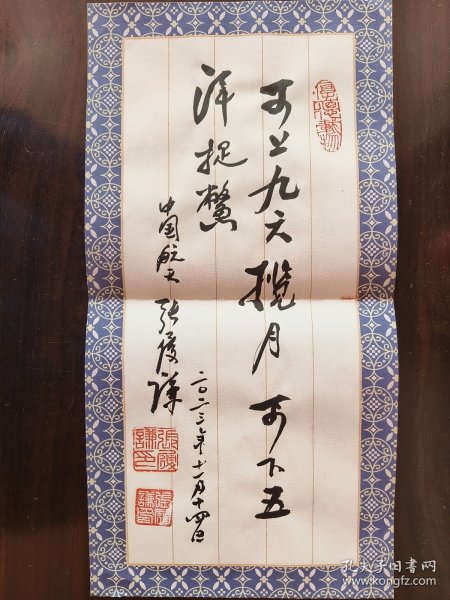 厚德載物
可上九天揽月可下五
洋捉鳖
中国航天 张履谦
二〇二三年十一月十四日
張履謙印
孔夫子旧书网
kongfz.com